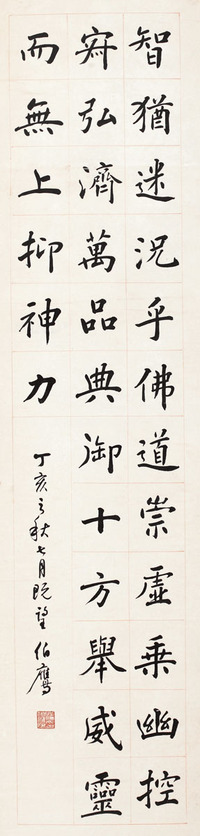 智猶迷況乎佛道崇虛乘幽控
寂弘濟萬品典御十方舉威靈
而無上抑神力
丁亥之秋七月既望 伯鷹